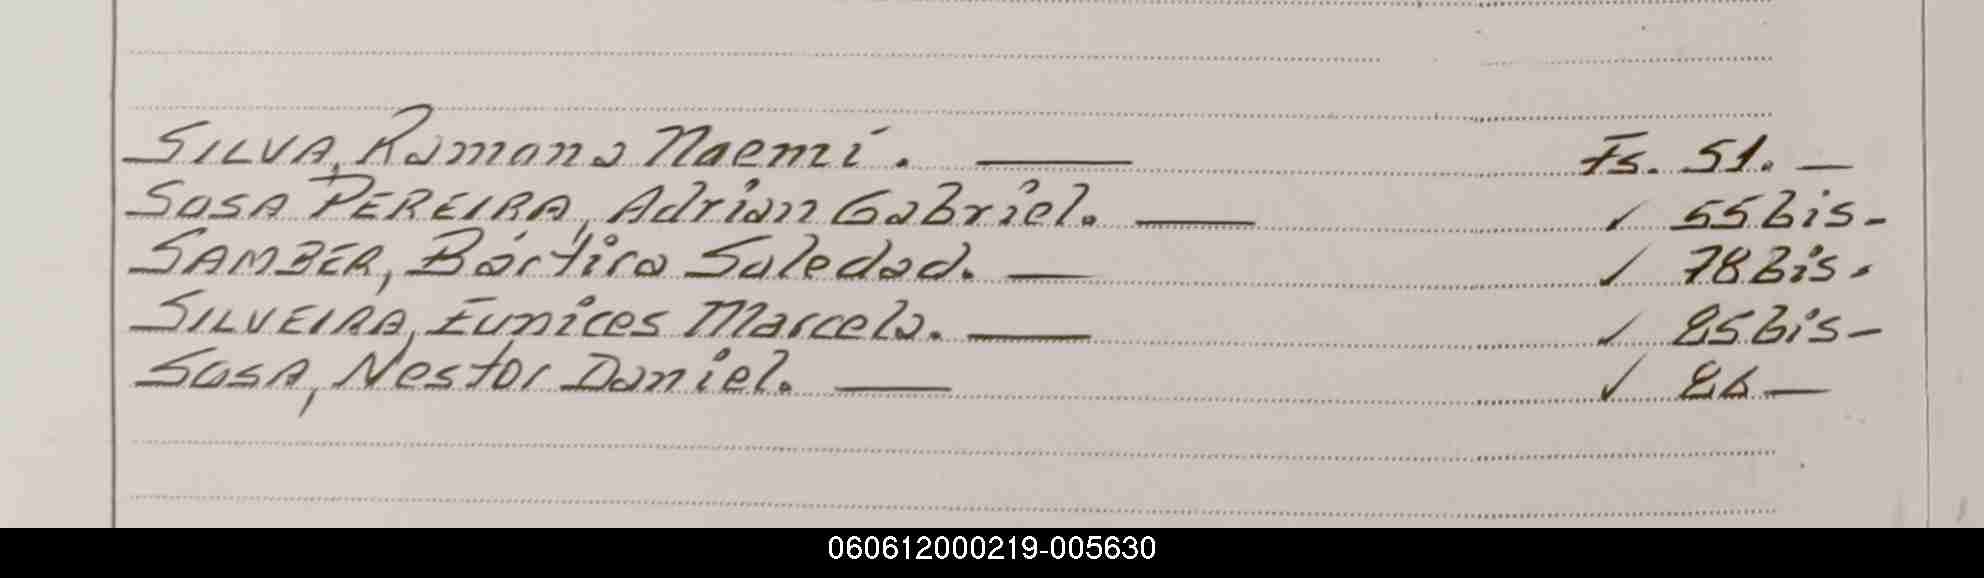 SILVA, Ramona Noemi. — Fs. 51. —
SOSA PEREIRA, Adrian Gabriel. — ✓ 55 bis -
SAMBER, Bártira Soledad. — ✓ 78 bis -
SILVEIRA, Eunices Marcela. — ✓ 85 bis -
SOSA, Nestor Daniel. — ✓ 86 —
060612000219-005630